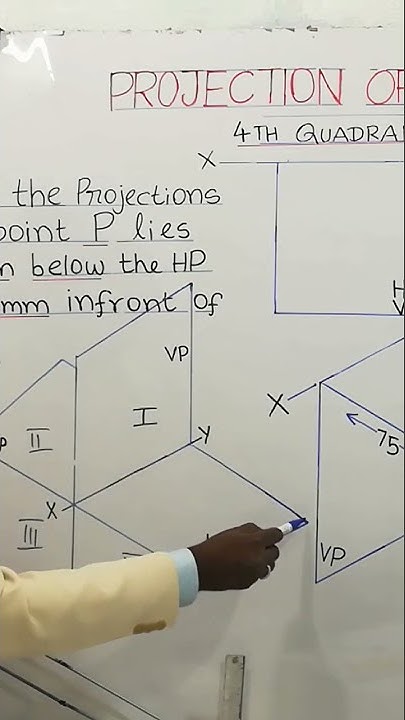 PROJECTION OF
4TH QUADRA
X
the Projections
point P lies
n below the HP
mm infront of
VP
I
II
Y
X
III
X
75
VP